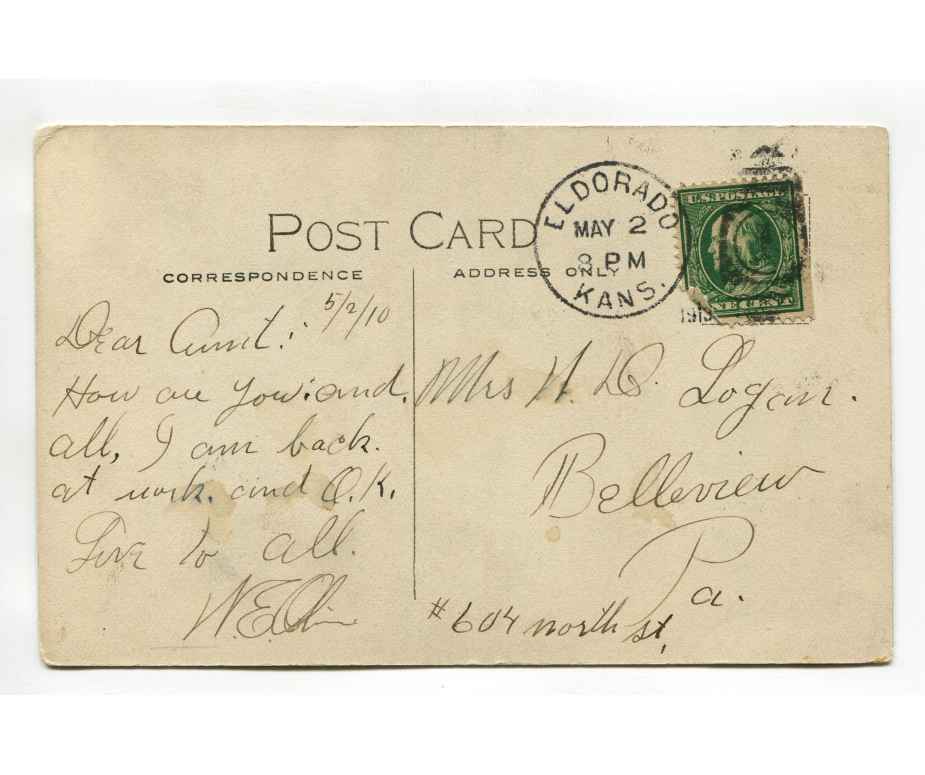 POST CARD
CORRESPONDENCE
ADDRESS ONLY
ELDORADO
MAY 2
8 PM
KANS.
U.S. POSTAGE
5/2/10
Dear Aunt:
How are you and
all, I am back
at work. and O.K.
to all.
W.E.
Mrs H. D. Logan.
Belleview
Pa.
#604 north st,